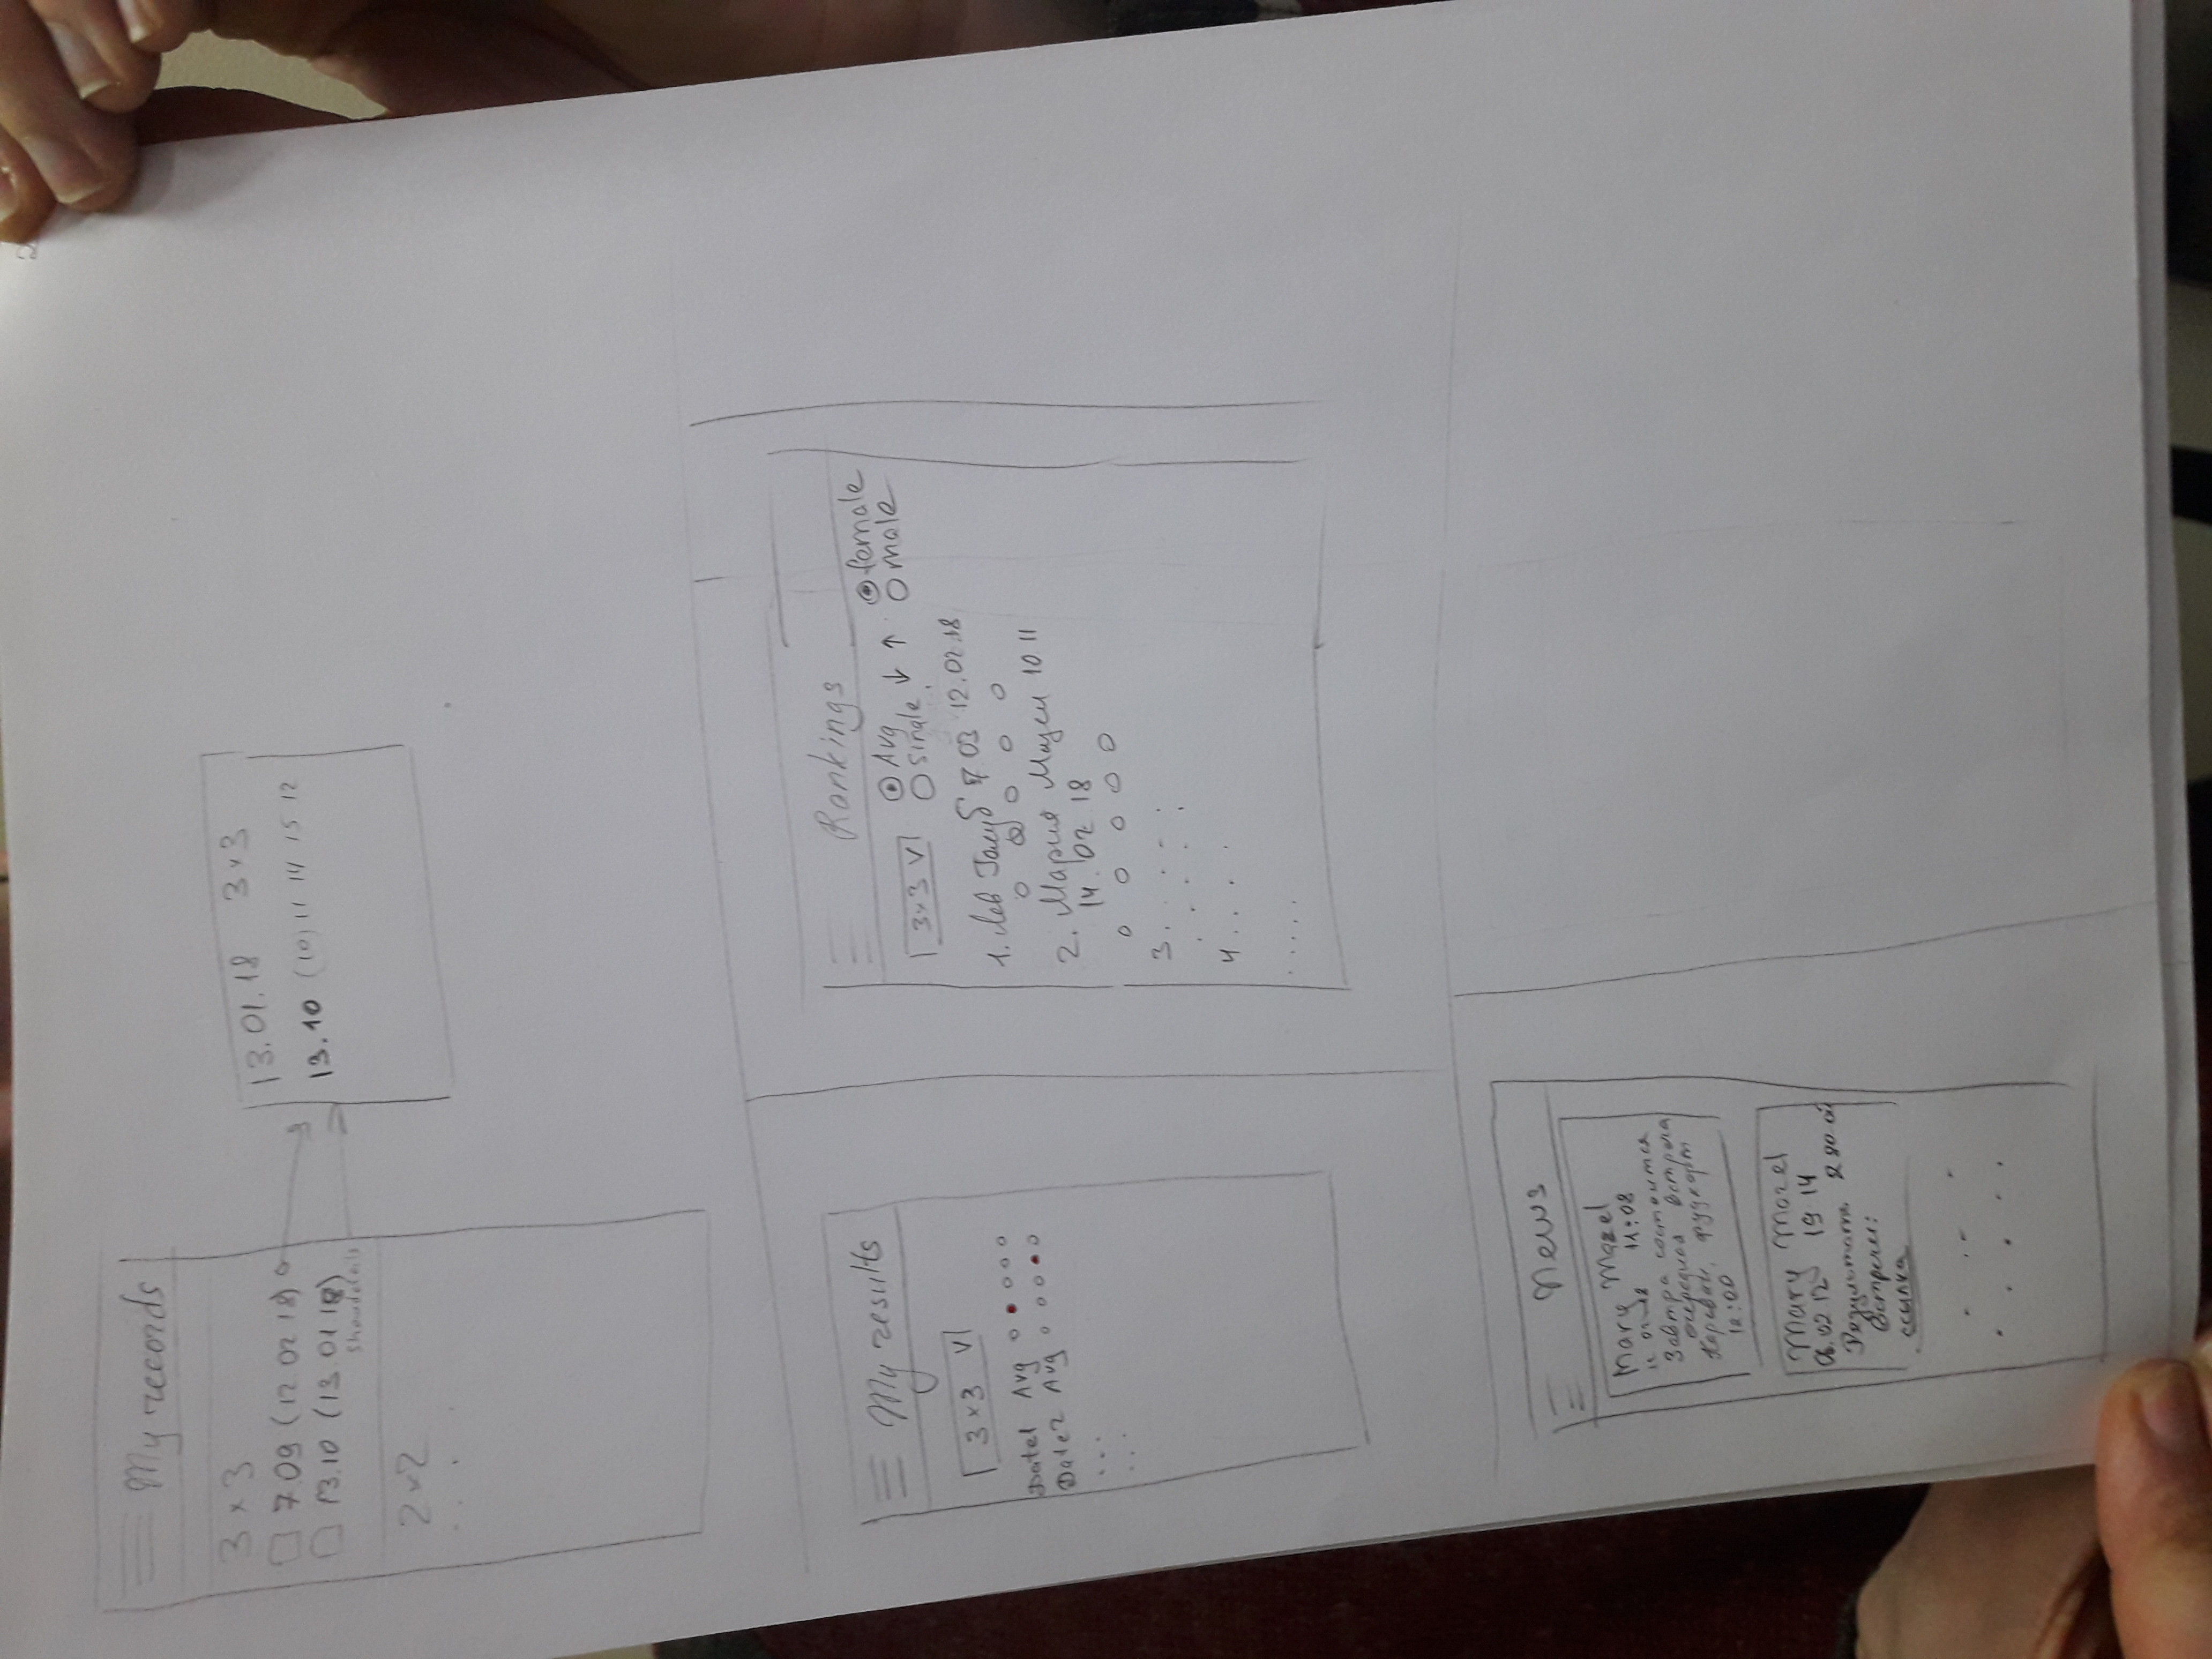 My records
3 x 3
7.09 (12 02 18)
13.10 (13.01 18)
Show details
2x2
13.01.18 3x3
13.10 (10) 11 14 15 12
My results
3x3 V
Date1 Avg
Date2 Avg
Rankings
3x3 V
Avg
Single ↓ ↑
female
male
1. Лев Голуб 7 03 12.02.18
2. Мария Мазел 10 11
14. 02 18
3.
4
News
Mary Mazel
11 02 18 11:08
Завтра состоится
очередная встреча
Караван, фудкорт
12:00
Mary Mazel
06.02 12 19 14
Результаты 280-ой
встречи:
ссылка